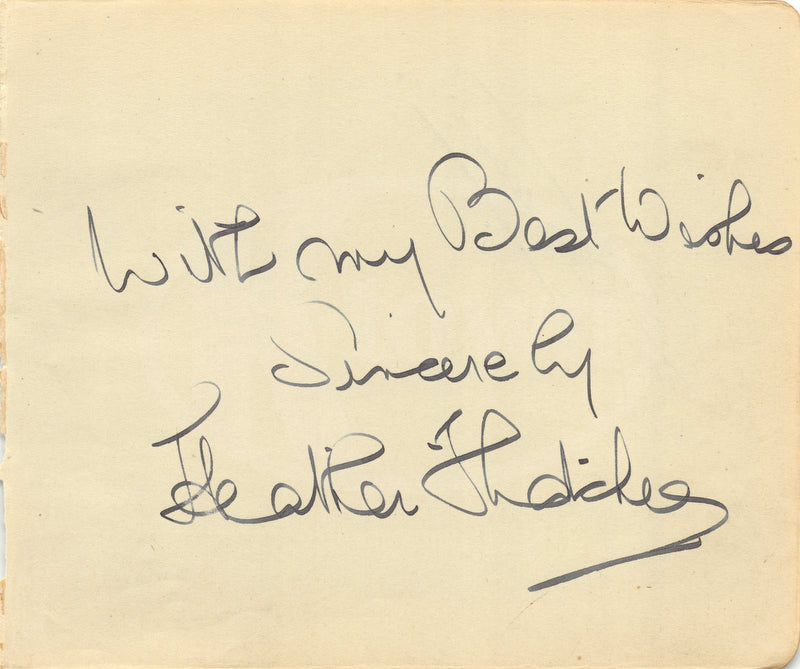 With my Best Wishes
Sincerely
Heather Thatcher